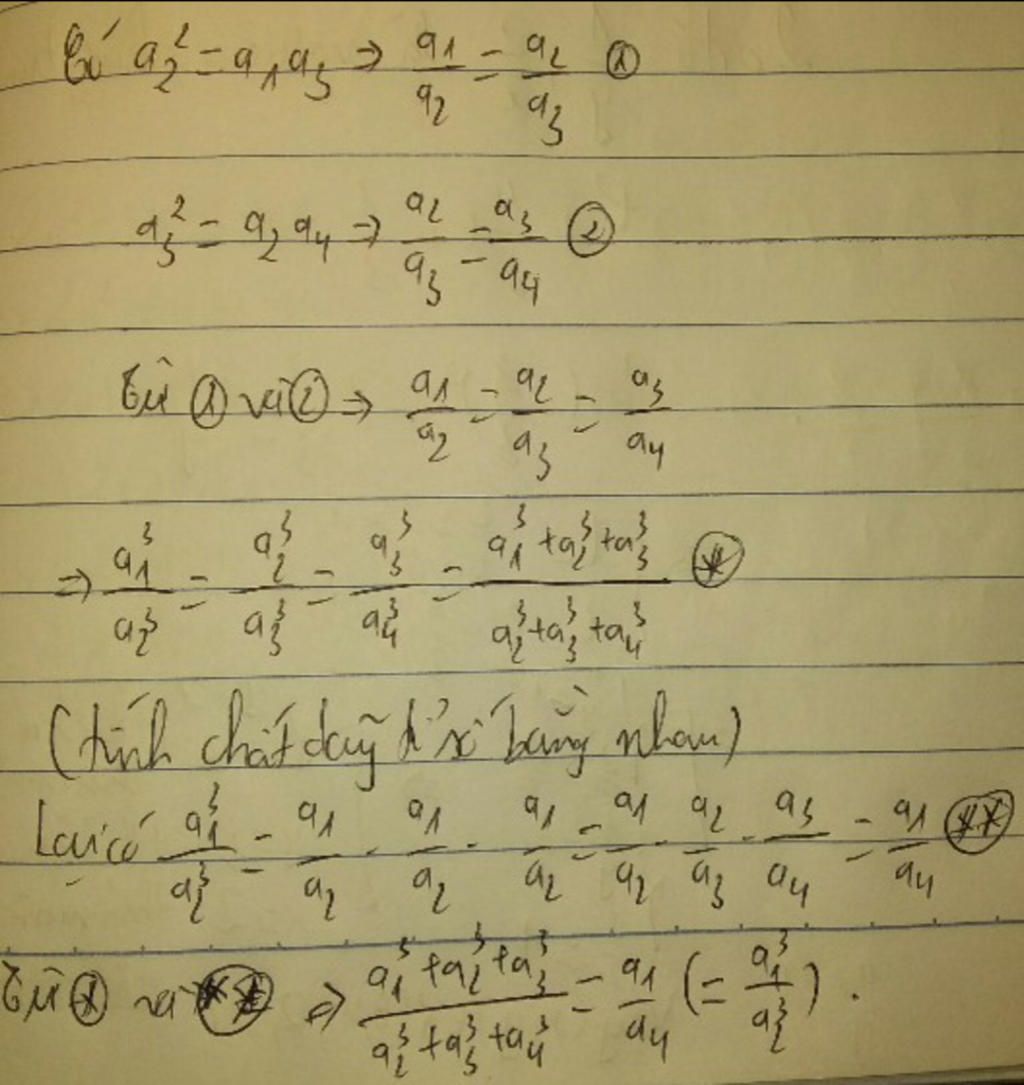 Có a₂² = a₁a₃ ⇒ a₁/a₂ = a₂/a₃ ①
a₃² = a₂a₄ ⇒ a₂/a₃ = a₃/a₄ ②
Từ ① và ② ⇒ a₁/a₂ = a₂/a₃ = a₃/a₄
⇒ a₁³/a₂³ = a₂³/a₃³ = a₃³/a₄³ = (a₁³ + a₂³ + a₃³)/(a₂³ + a₃³ + a₄³) (*)
(tính chất dãy tỉ số bằng nhau)
Lại có a₁³/a₂³ = a₁/a₂ · a₁/a₂ · a₁/a₂ = a₁/a₂ · a₂/a₃ · a₃/a₄ = a₁/a₄ (**)
Từ (*) và (**) ⇒ (a₁³ + a₂³ + a₃³)/(a₂³ + a₃³ + a₄³) = a₁/a₄ (= a₁³/a₂³).